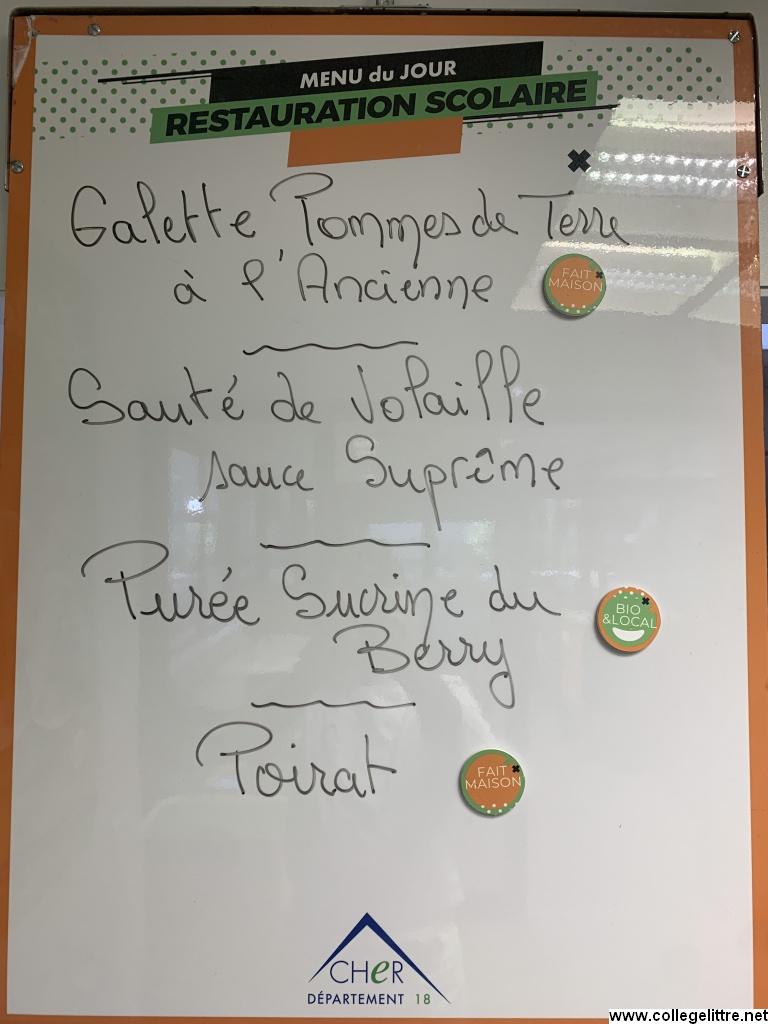 MENU du JOUR
RESTAURATION SCOLAIRE
Galette Pommes de Terre
à l'Ancienne
FAIT
MAISON
Sauté de Volaille
sauce Suprême
Purée Sucrine du
Berry
BIO
&LOCAL
Poirat
FAIT
MAISON
CHeR
DÉPARTEMENT 18
www.collegelittre.net